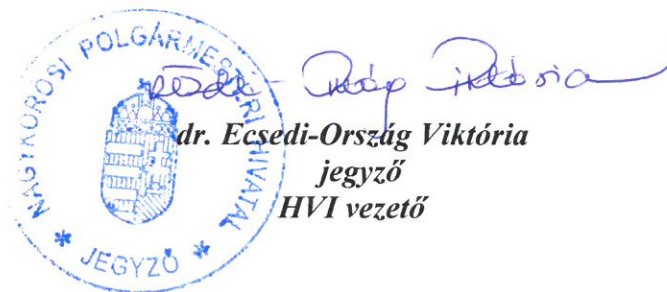 NAGYKŐRÖSI POLGÁRMESTERI HIVATAL
* JEGYZŐ *
dr. Ecsedi-Ország Viktória
jegyző
HVI vezető